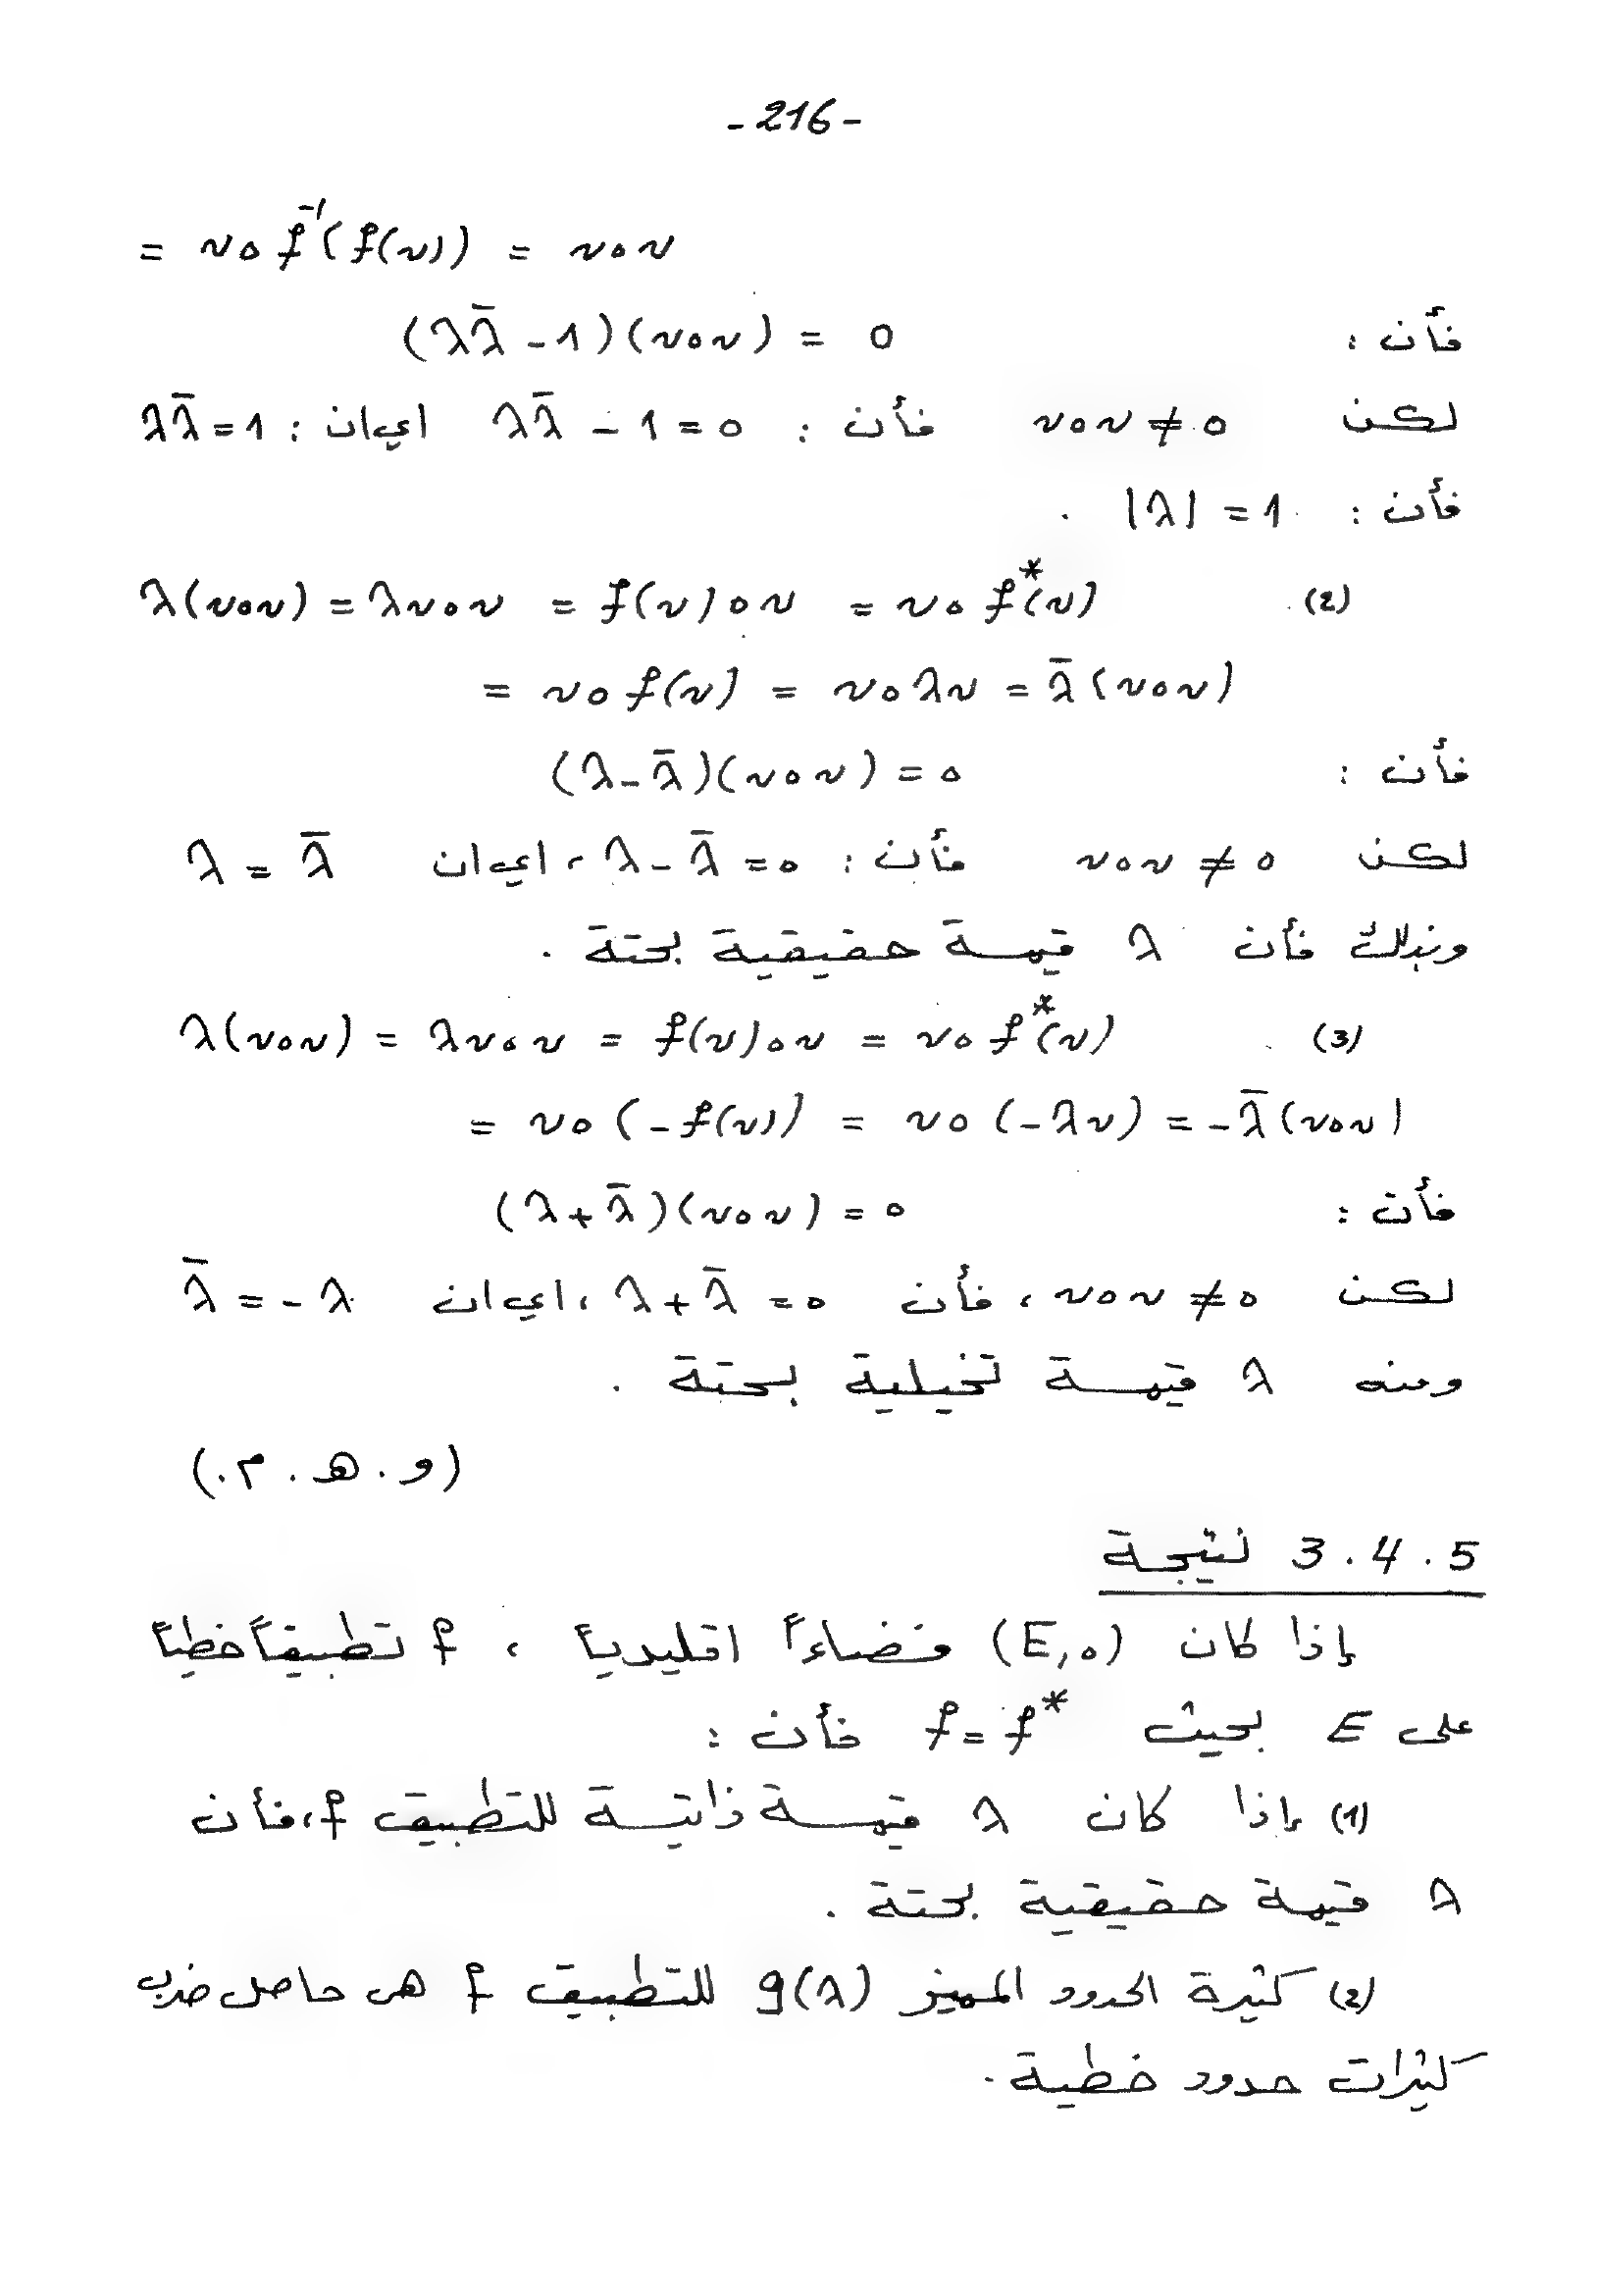 - 216 -
= v∘f⁻¹(f(v)) = v∘v
فأن : (λλ̄ - 1)(v∘v) = 0
لكن v∘v ≠ 0 فأن : λλ̄ - 1 = 0 اي ان : λλ̄ = 1
فأن : |λ| = 1 .
(2) λ(v∘v) = λv∘v = f(v)∘v = v∘f*(v)
= v∘f(v) = v∘λv = λ̄(v∘v)
فأن : (λ-λ̄)(v∘v) = 0
لكن v∘v ≠ 0 فأن : λ-λ̄ = 0 ، اي ان λ = λ̄
وبذلك فأن λ قيمة حقيقية بحتة .
(3) λ(v∘v) = λv∘v = f(v)∘v = v∘f*(v)
= v∘(-f(v)) = v∘(-λv) = -λ̄(v∘v)
فأن : (λ+λ̄)(v∘v) = 0
لكن v∘v ≠ 0 ، فأن λ+λ̄ = 0 ، اي ان λ̄ = -λ
ومنه λ قيمة تخيلية بحتة .
(و . هـ . م .)
3 . 4 . 5 نتيجة
إذا كان (E,∘) فضاءاً اقليدياً ، f تطبيقاً خطياً
على E بحيث f = f* فأن :
(1) إذا كان λ قيمة ذاتية للتطبيق f ، فأن
λ قيمة حقيقية بحتة .
(2) كثيرة الحدود المميز g(λ) للتطبيق f هى حاصل ضرب
كثيرات حدود خطية .